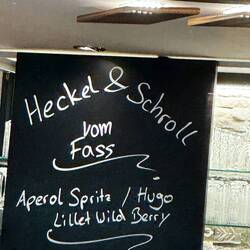 Heckel & Schroll
vom
Fass
Aperol Spritz / Hugo
Lillet Wild Berry